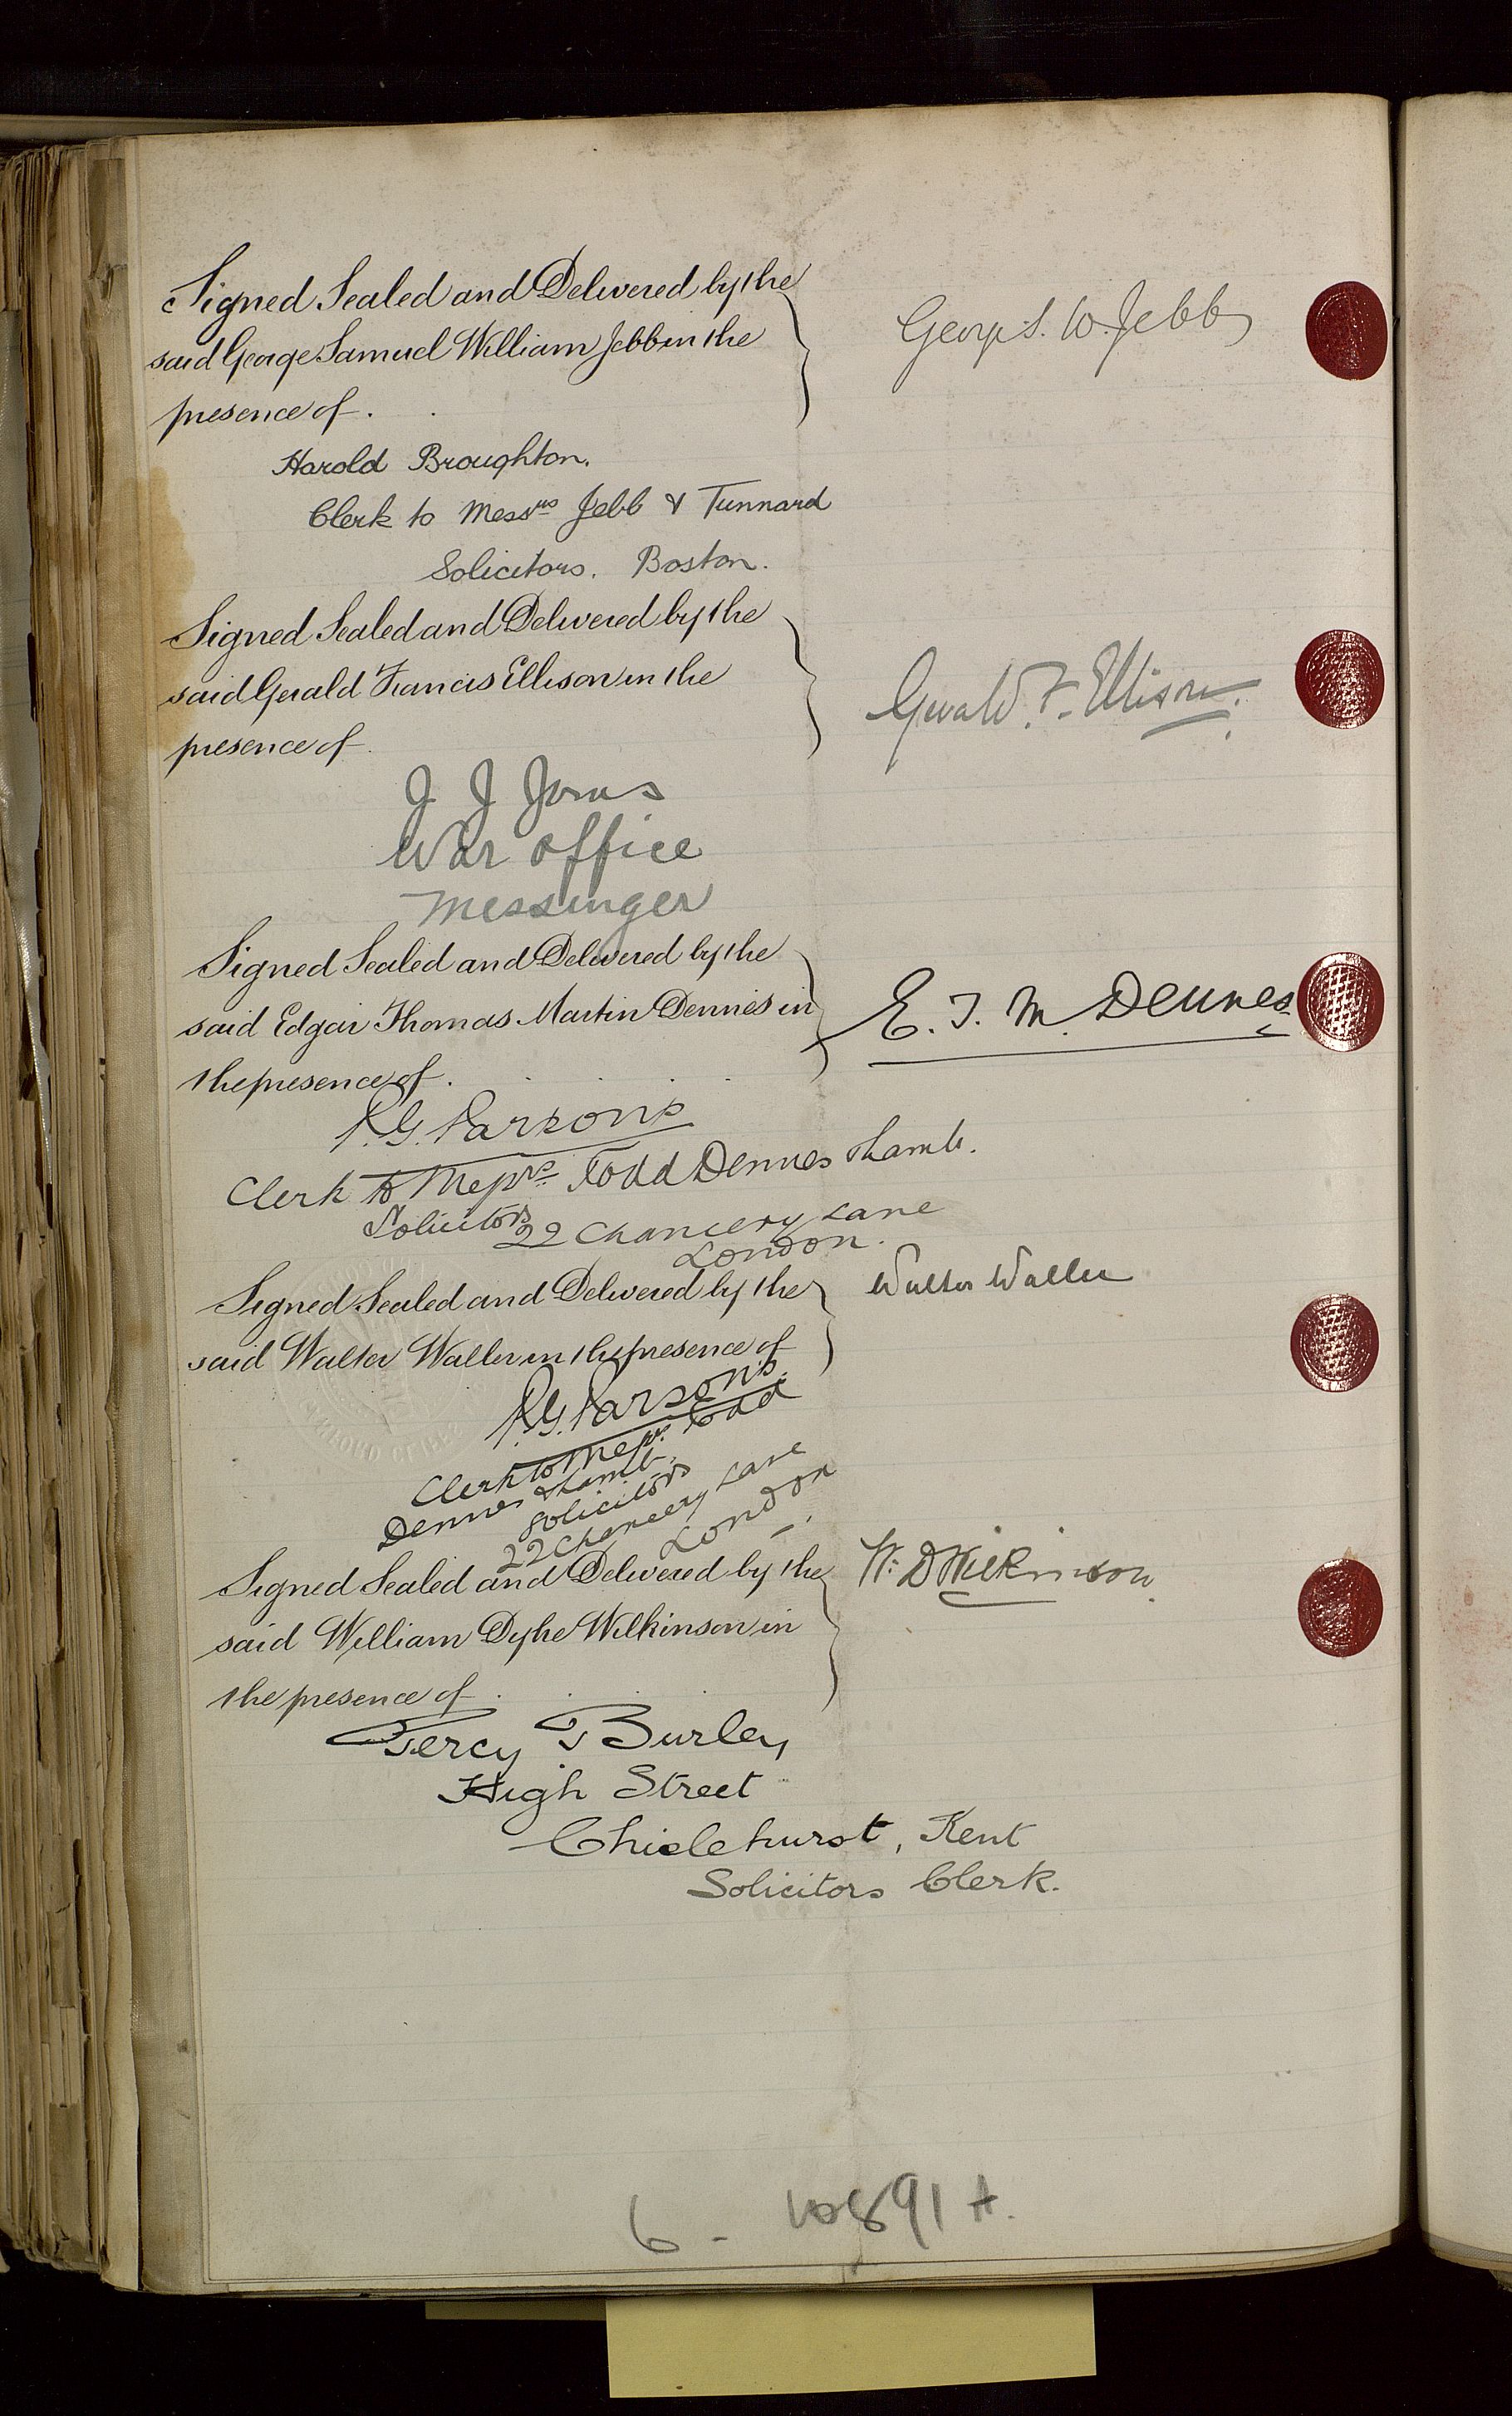 Signed Sealed and Delivered by the
said George Samuel William Jebb in the
presence of.
George S. W. Jebb
Harold Broughton.
Clerk to Messrs Jebb & Tunnard
Solicitors. Boston.
Signed Sealed and Delivered by the
said Gerald Francis Ellison in the
presence of
Gerald. F. Ellison.
J J Jones
War office
Messinger
Signed Sealed and Delivered by the
said Edgar Thomas Martin Dennes in
the presence of.
E. T. M. Dennes
P.G. Parsons
Clerk to Messrs Todd Dennes & Lamb.
Solicitors
22 Chancery Lane
London.
Signed Sealed and Delivered by the
said Walter Waller in the presence of
Walter Waller
P.G. Parsons
Clerk to Messrs. Todd
Dennes & Lamb.
Solicitors
22 Chancery Lane
London
Signed Sealed and Delivered by the
said William Dyke Wilkinson in
the presence of.
W. D Wilkinson.
Percy Burley
High Street
Chislehurst, Kent
Solicitors Clerk.
6 - 10891 A.